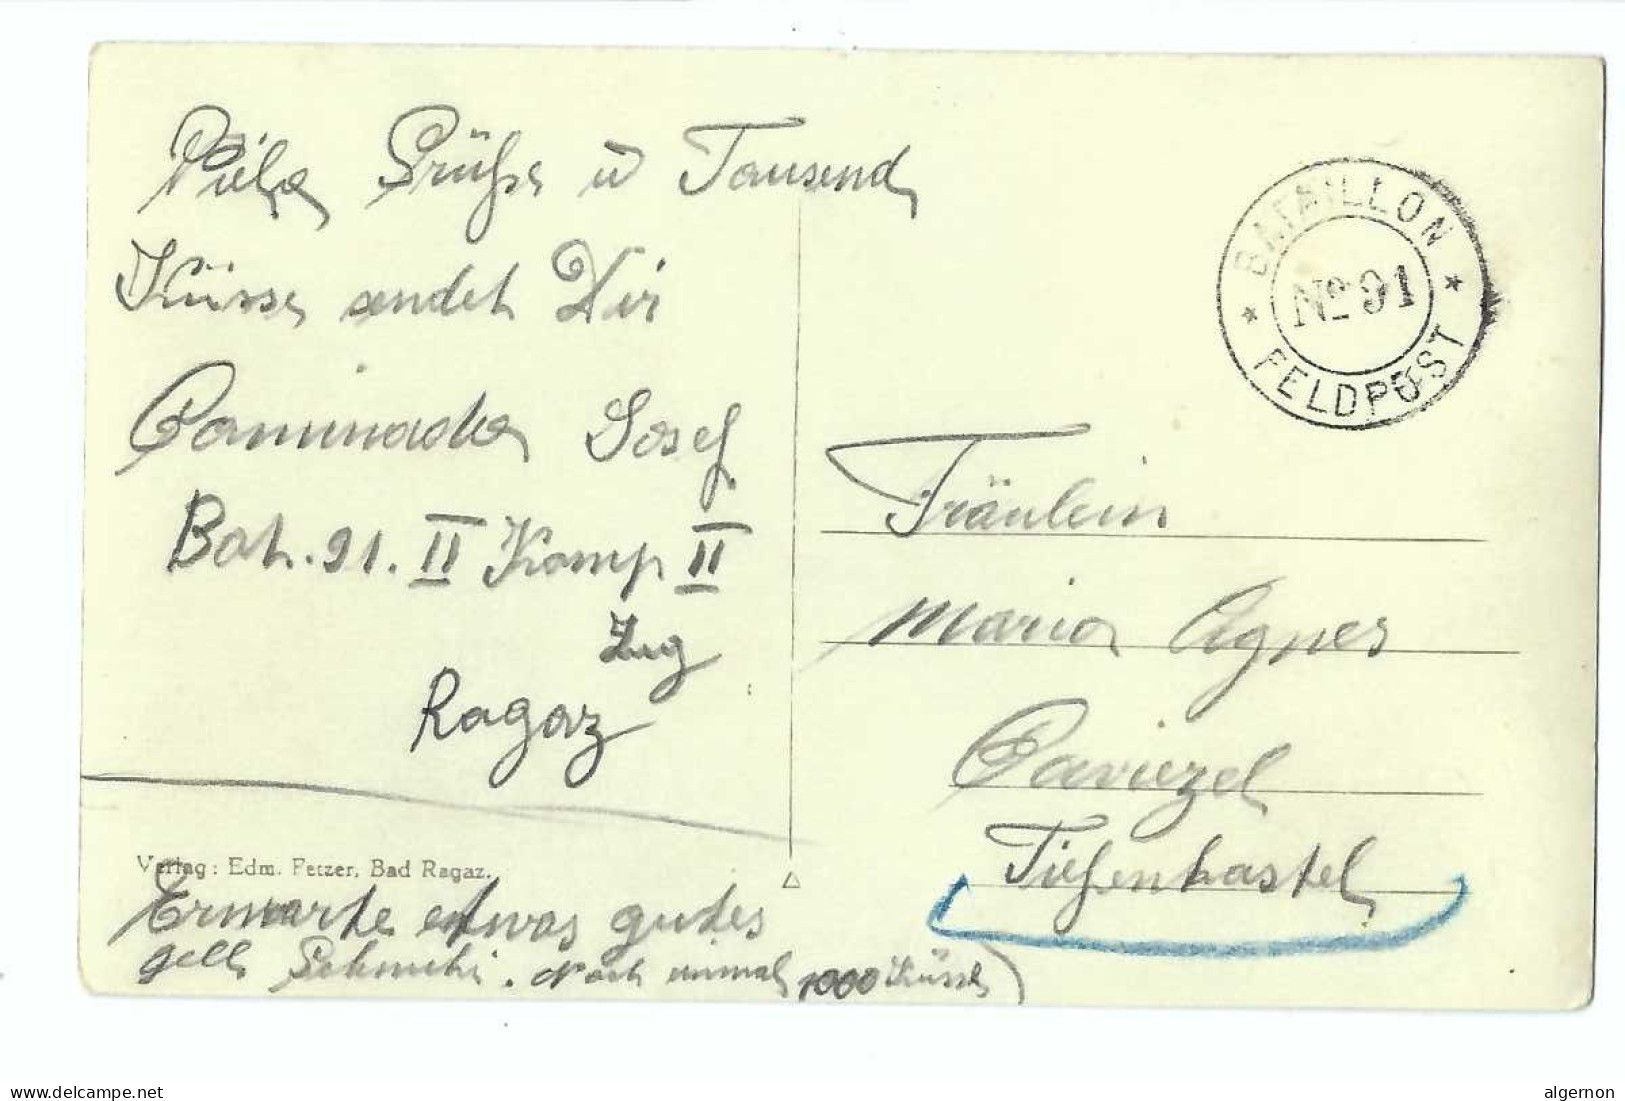 Viele Grüße u Tausend
Küsse sendet Dir
Caminada Josef
Bat. 91. II Komp II
Zug
Ragaz
Verlag: Edm. Fetzer, Bad Ragaz.
Erwarte etwas gutes
gell . Noch einmal 1000 Küsse
BATAILLON
No 91
FELDPOST
Fräulein
Maria Agnes
Caviezel
Tiefenkastel
www.delcampe.net
algernon